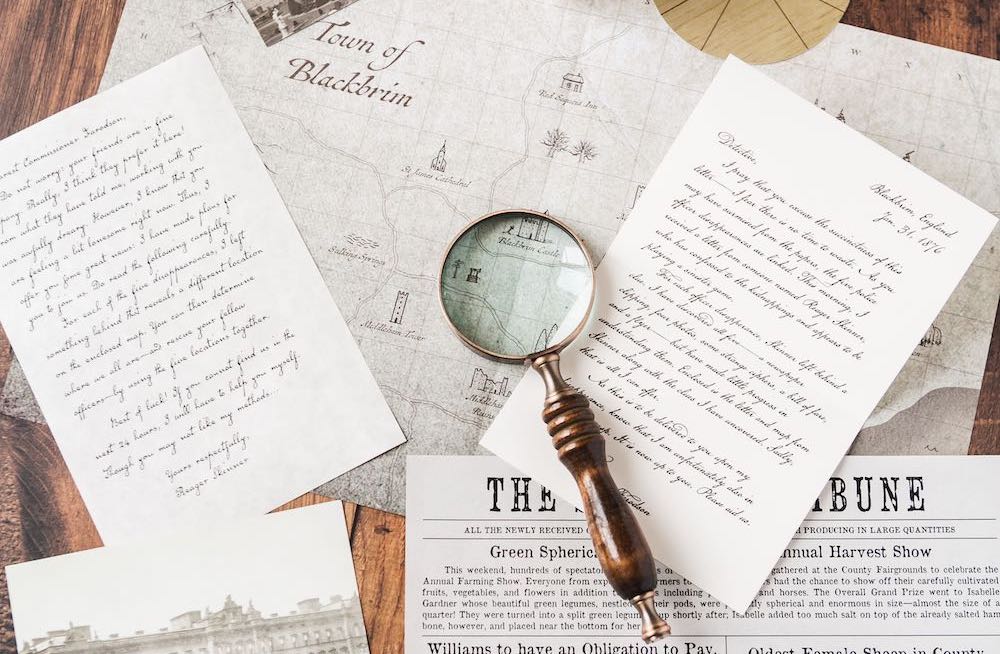 Town of
Blackbrim
Red Sequoia Inn
St James Cathedral
Blackbrim Castle
Middleborn Tower
W
X
Y
Commissioner
Do not worry: your friends are in fine
Really! I think they prefer it here!
what they have told me, working with you
awfully dreary. However, I know that you
are feeling a bit lonesome right now. Thus, I
offer you some great news: I have made plans for
you to join us. Do read the following carefully.
For each of the five disappearances, I left
something behind that reveals a different location
on the enclosed map. You can then determine
where we all are—and rescue your fellow
officers—by using the five locations together.
Best of luck! If you cannot find us in the
next 24 hours, I will have to help you myself.
Though you may not like my methods...
Yours respectfully,
Detective,
Blackbrim, England
Jan. 31, 1876
I pray that you excuse the succinctness of this
letter—I fear there is no time to waste. As you
may have surmised from the papers, the five police
officer disappearances are linked. This morning, I
received a letter from someone named Roger Skinner,
who has confessed to the kidnappings and appears to be
playing a sinister game.
For each officer disappearance, Skinner left behind a
clue. I have uncovered all five—a newspaper
clipping, four photos, some strange ciphers, a bill of fare,
and a flyer—but have made little progress in
understanding them. Enclosed is the letter and map from
Skinner along with the clues I have uncovered. Sadly,
that is all I can offer.
As this is to be delivered to you upon my
know that I am unfortunately also in
It is now up to you. Please aid us.
THE
BUNE
ALL THE NEWLY RECEIVED
PRODUCING IN LARGE QUANTITIES
Green
nnual Harvest Show
This weekend, hundreds of
gathered at the County Fairgrounds to celebrate the
Annual Farming Show. Everyone from
had the chance to show off their carefully cultivated
fruits, vegetables, and flowers in addition
including
and horses. The Overall Grand Prize went to Isabelle
Gardner whose beautiful green legumes,
their pods, were
spherical and enormous in size—almost the size of a
quarter! They were turned into a split green
up shortly after, Isabelle added too much salt on top of the already salted ham
bone, however, and placed near the bottom for
Williams to have an Obligation to Pay.
Oldest Female Sheep in County